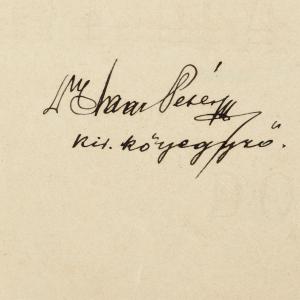 Dr Saar Péter
kir. közjegyző.